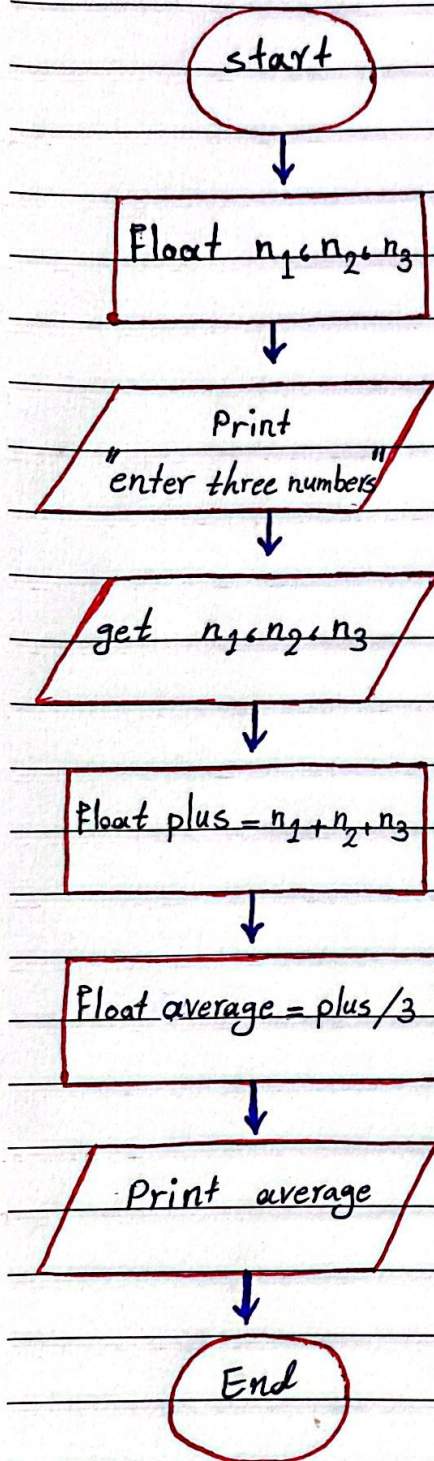 start
Float n₁، n₂، n₃
Print
"enter three numbers"
get n₁، n₂، n₃
Float plus = n₁ + n₂ + n₃
Float average = plus / 3
Print average
End